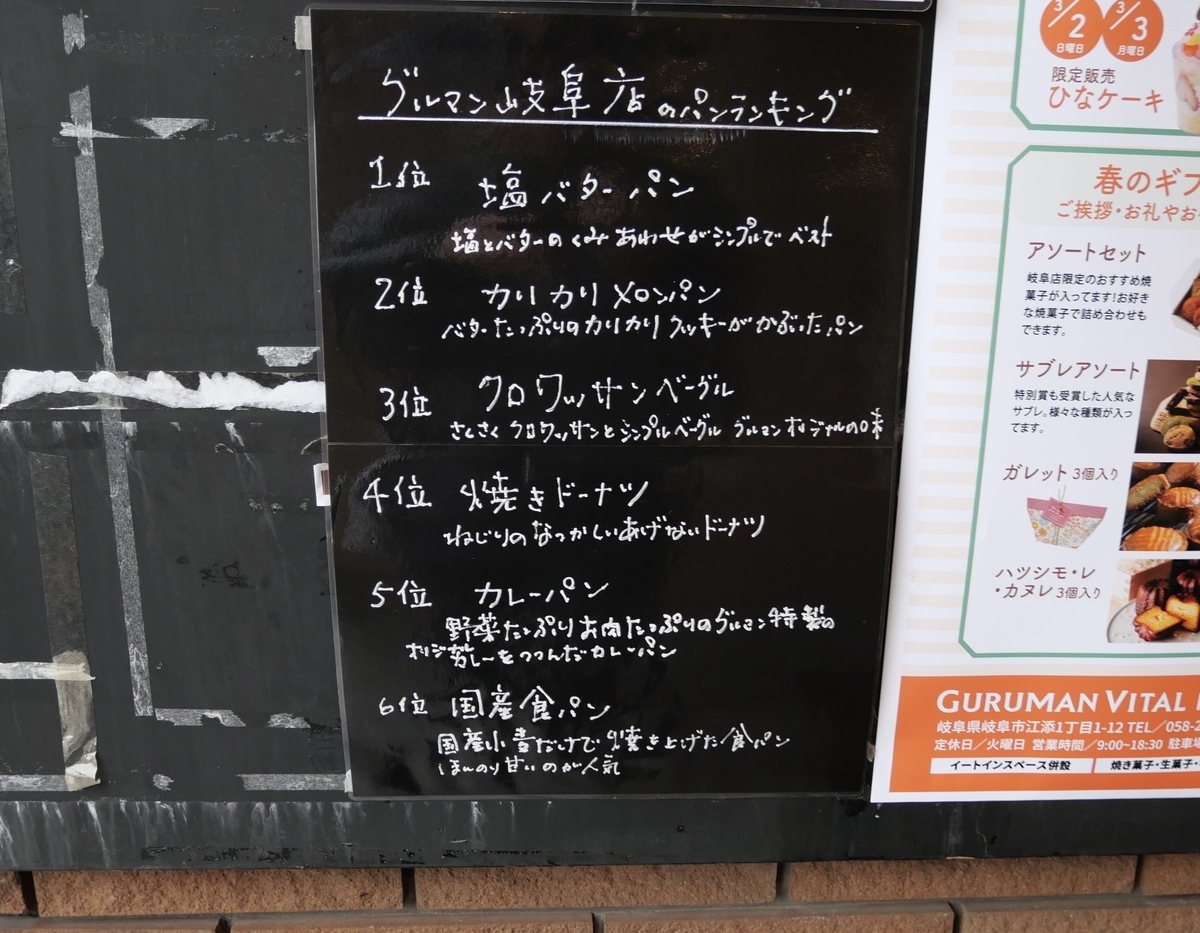 グルマン岐阜店のパンランキング
1位 塩バターパン
塩とバターのくみあわせがシンプルでベスト
2位 カリカリメロンパン
バターたっぷりのカリカリクッキーがかぶったパン
3位 クロワッサンベーグル
さくさくクロワッサンとシンプルベーグル グルマンオリジナルの味
4位 焼きドーナツ
ねじりのなつかしいあげないドーナツ
5位 カレーパン
野菜たっぷりお肉たっぷりのグルマン特製の
カレーをつつんだカレーパン
6位 国産食パン
国産小麦だけで焼き上げた食パン
ほんのり甘いのが人気
3/2 日曜日
3/3 月曜日
限定販売
ひなケーキ
春のギフ
ご挨拶・お礼やお
アソートセット
岐阜店限定のおすすめ焼
菓子が入ってます!お好き
な焼菓子で詰め合わせも
できます。
サブレアソート
特別賞も受賞した人気な
サブレ。様々な種類が入っ
てます。
ガレット 3個入り
ハツシモ・レ
・カヌレ 3個入り
GURUMAN VITAL
岐阜県岐阜市江添1丁目1-12 TEL/058-2
定休日/火曜日 営業時間/9:00~18:30 駐車場
イートインスペース併設
焼き菓子・生菓子・